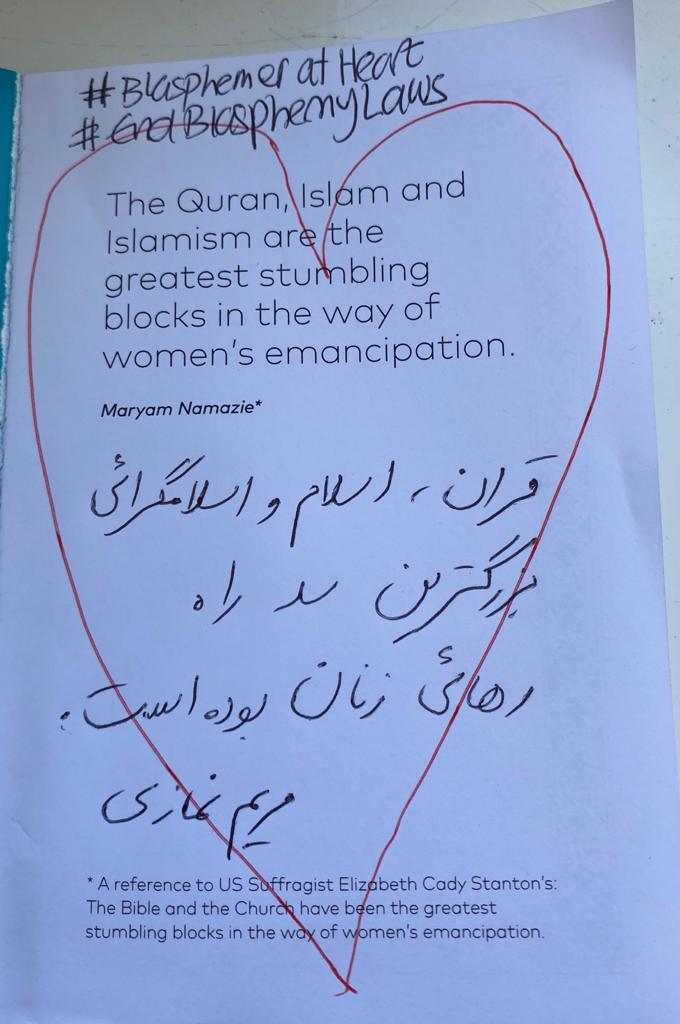 #Blasphemer at Heart
#End Blasphemy Laws
The Quran, Islam and
Islamism are the
greatest stumbling
blocks in the way of
women's emancipation.
Maryam Namazie*
قران، اسلام و اسلامگرائی
بزرگترین سد راه
رهائی زنان بوده است.
مریم نمازی
* A reference to US Suffragist Elizabeth Cady Stanton's:
The Bible and the Church have been the greatest
stumbling blocks in the way of women's emancipation.